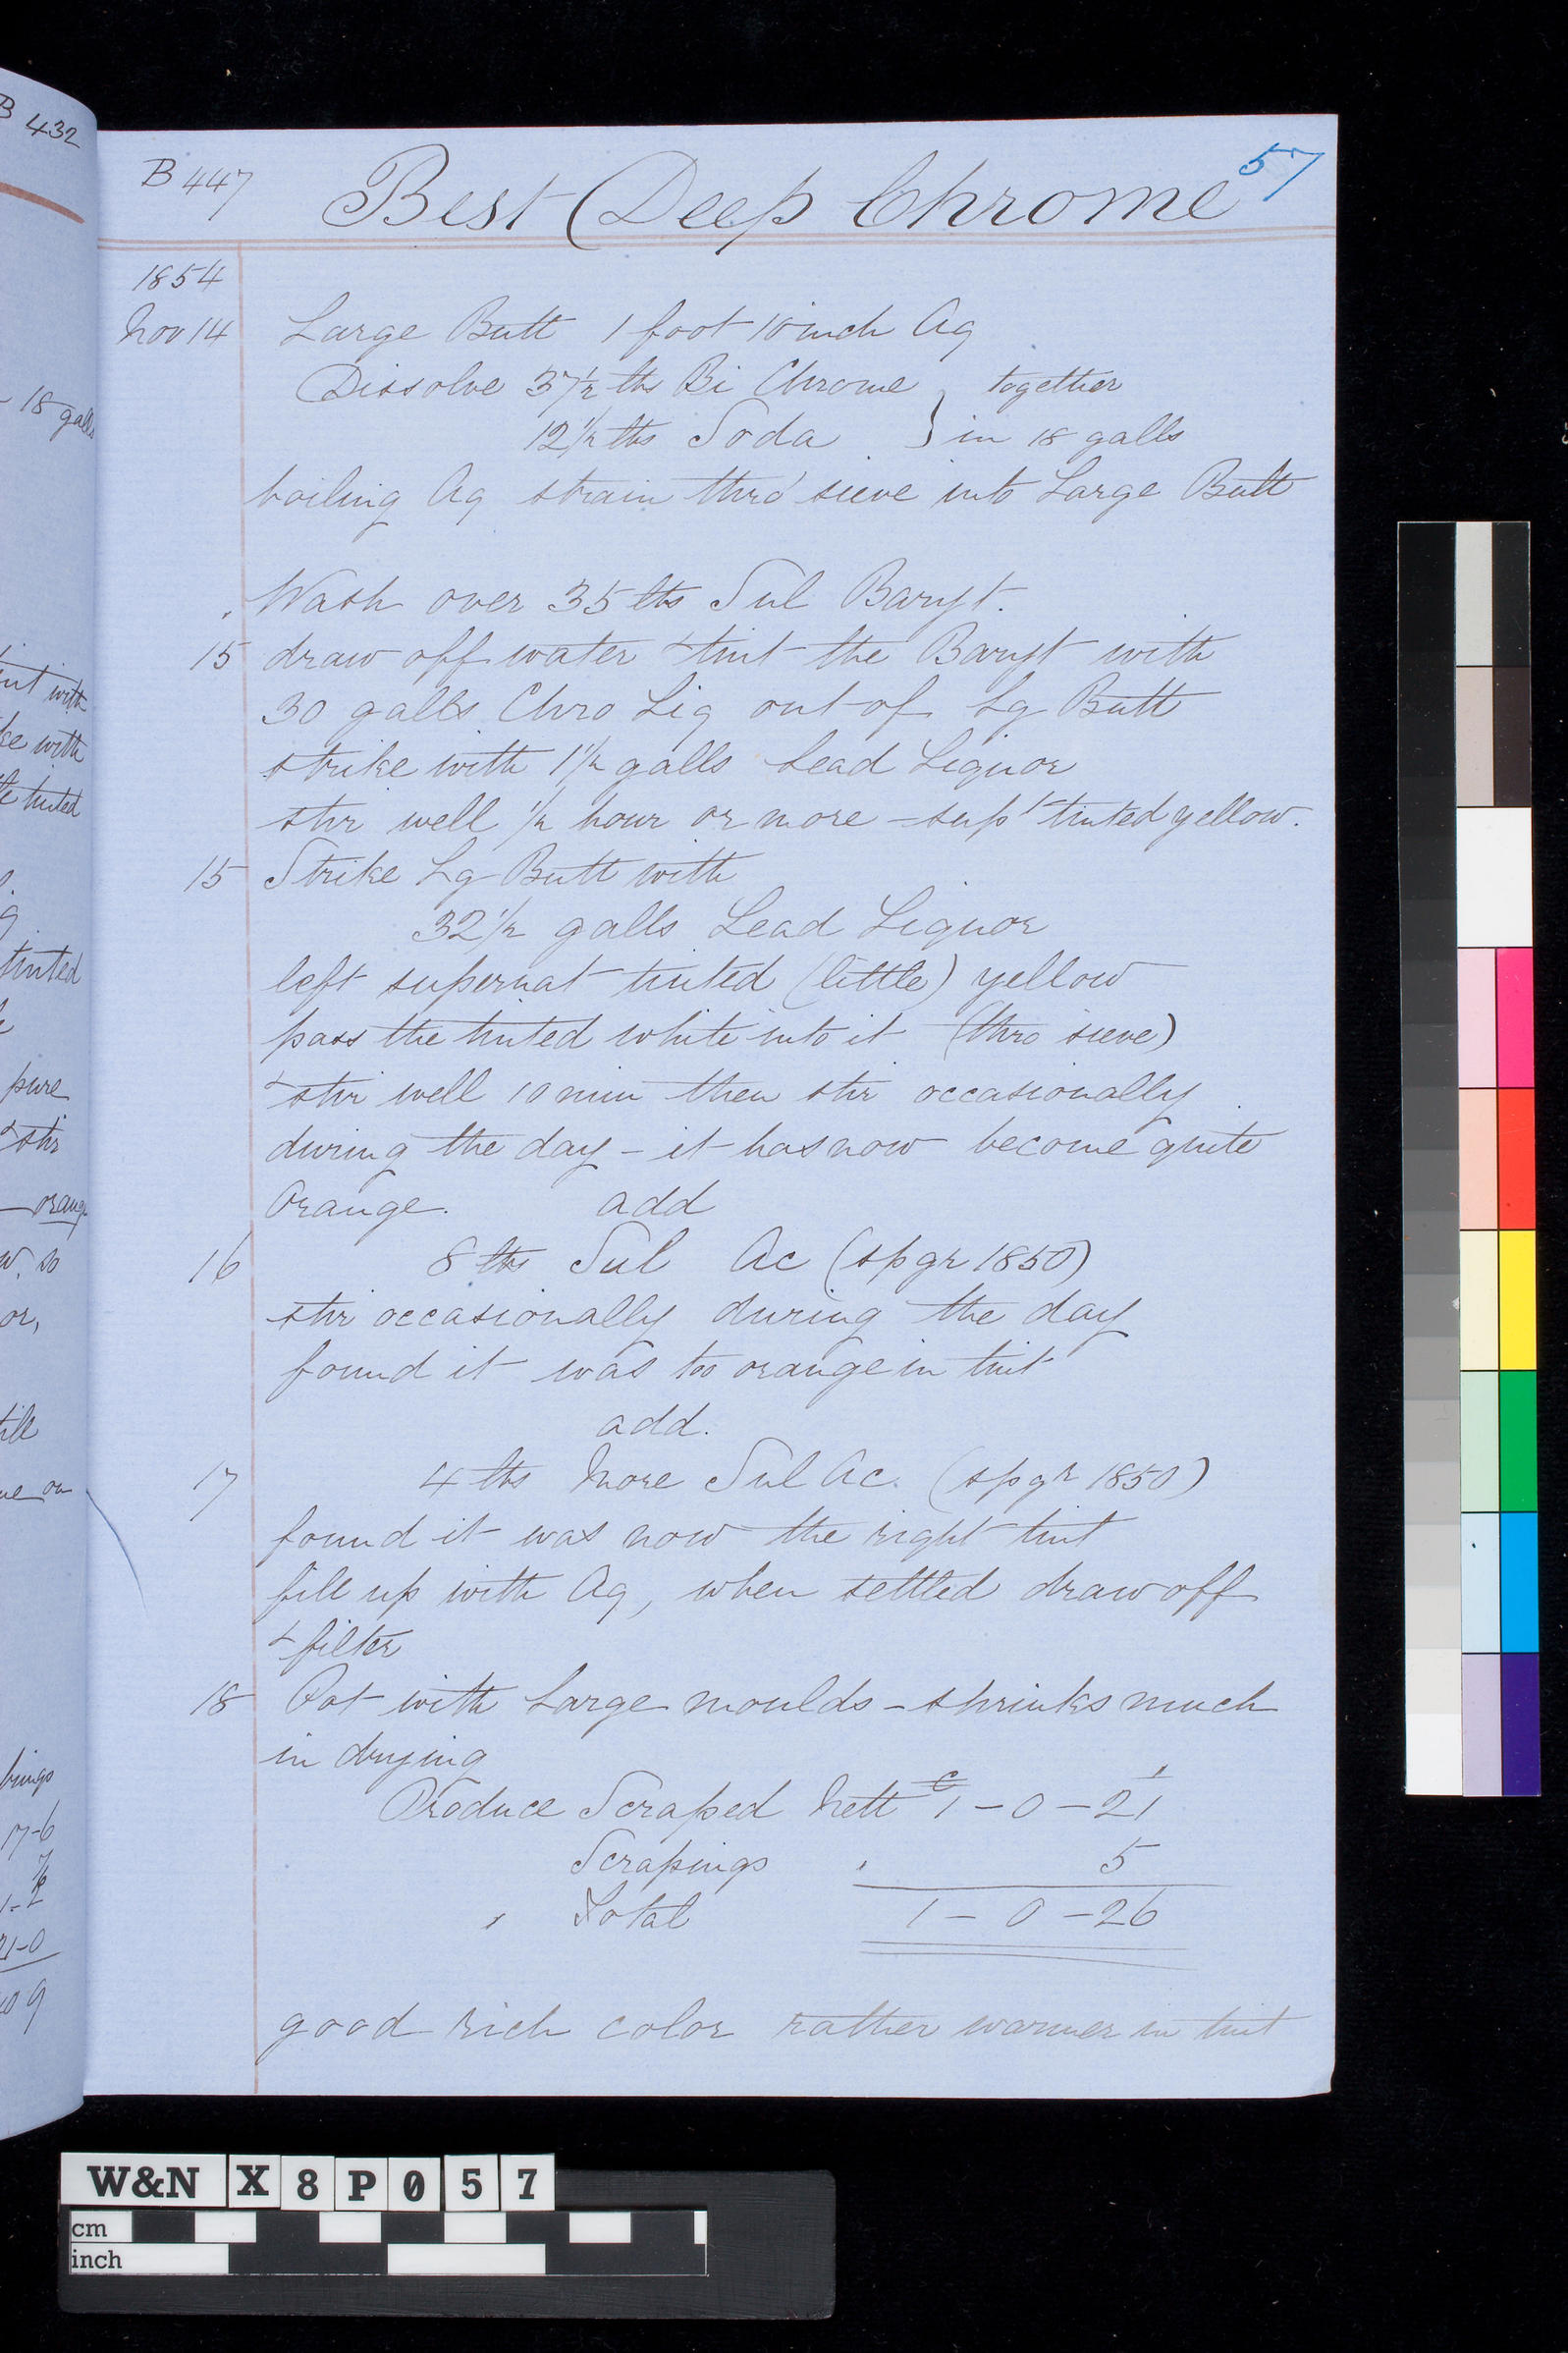 B 432
B 447
Best Deep Chrome
57
1854
Nov 14 Large Butt 1 foot 10 inch Aq
Dissolve 37½ lbs Bi Chrome } together
12½ lbs Soda } in 18 galls
boiling Aq strain thro' sieve into Large Butt
Wash over 35 lbs Sul Baryt.
15 draw off water & tint the Baryt with
30 galls Chro Liq out of Lg Butt
strike with 1½ galls Lead Liquor
stir well ½ hour or more - supt tinted yellow.
15 Strike Lg Butt with
32½ galls Lead Liquor
left supernat tinted (little) yellow
pass the tinted white into it (thro sieve)
& stir well 10 min then stir occasionally
during the day - it has now become quite
Orange. add
16 8 lbs Sul Ac (sp gr 1850)
stir occasionally during the day
found it was too orange in tint
add.
17 4 lbs more Sul Ac. (sp gr 1850)
found it was now the right tint
fill up with Aq, when settled draw off
& filter
18 Pot with Large moulds - shrinks much
in drying
Produce Scraped Nett c 1 - 0 - 21
Scrapings 5
Total 1 - 0 - 26
good rich color rather warmer in tint
18 galls
tint with
ke with
tinted
tinted
pure
& stir
orange
so
or,
till
17-6
1-2
21-0
W&N X 8 P 0 5 7
cm
inch